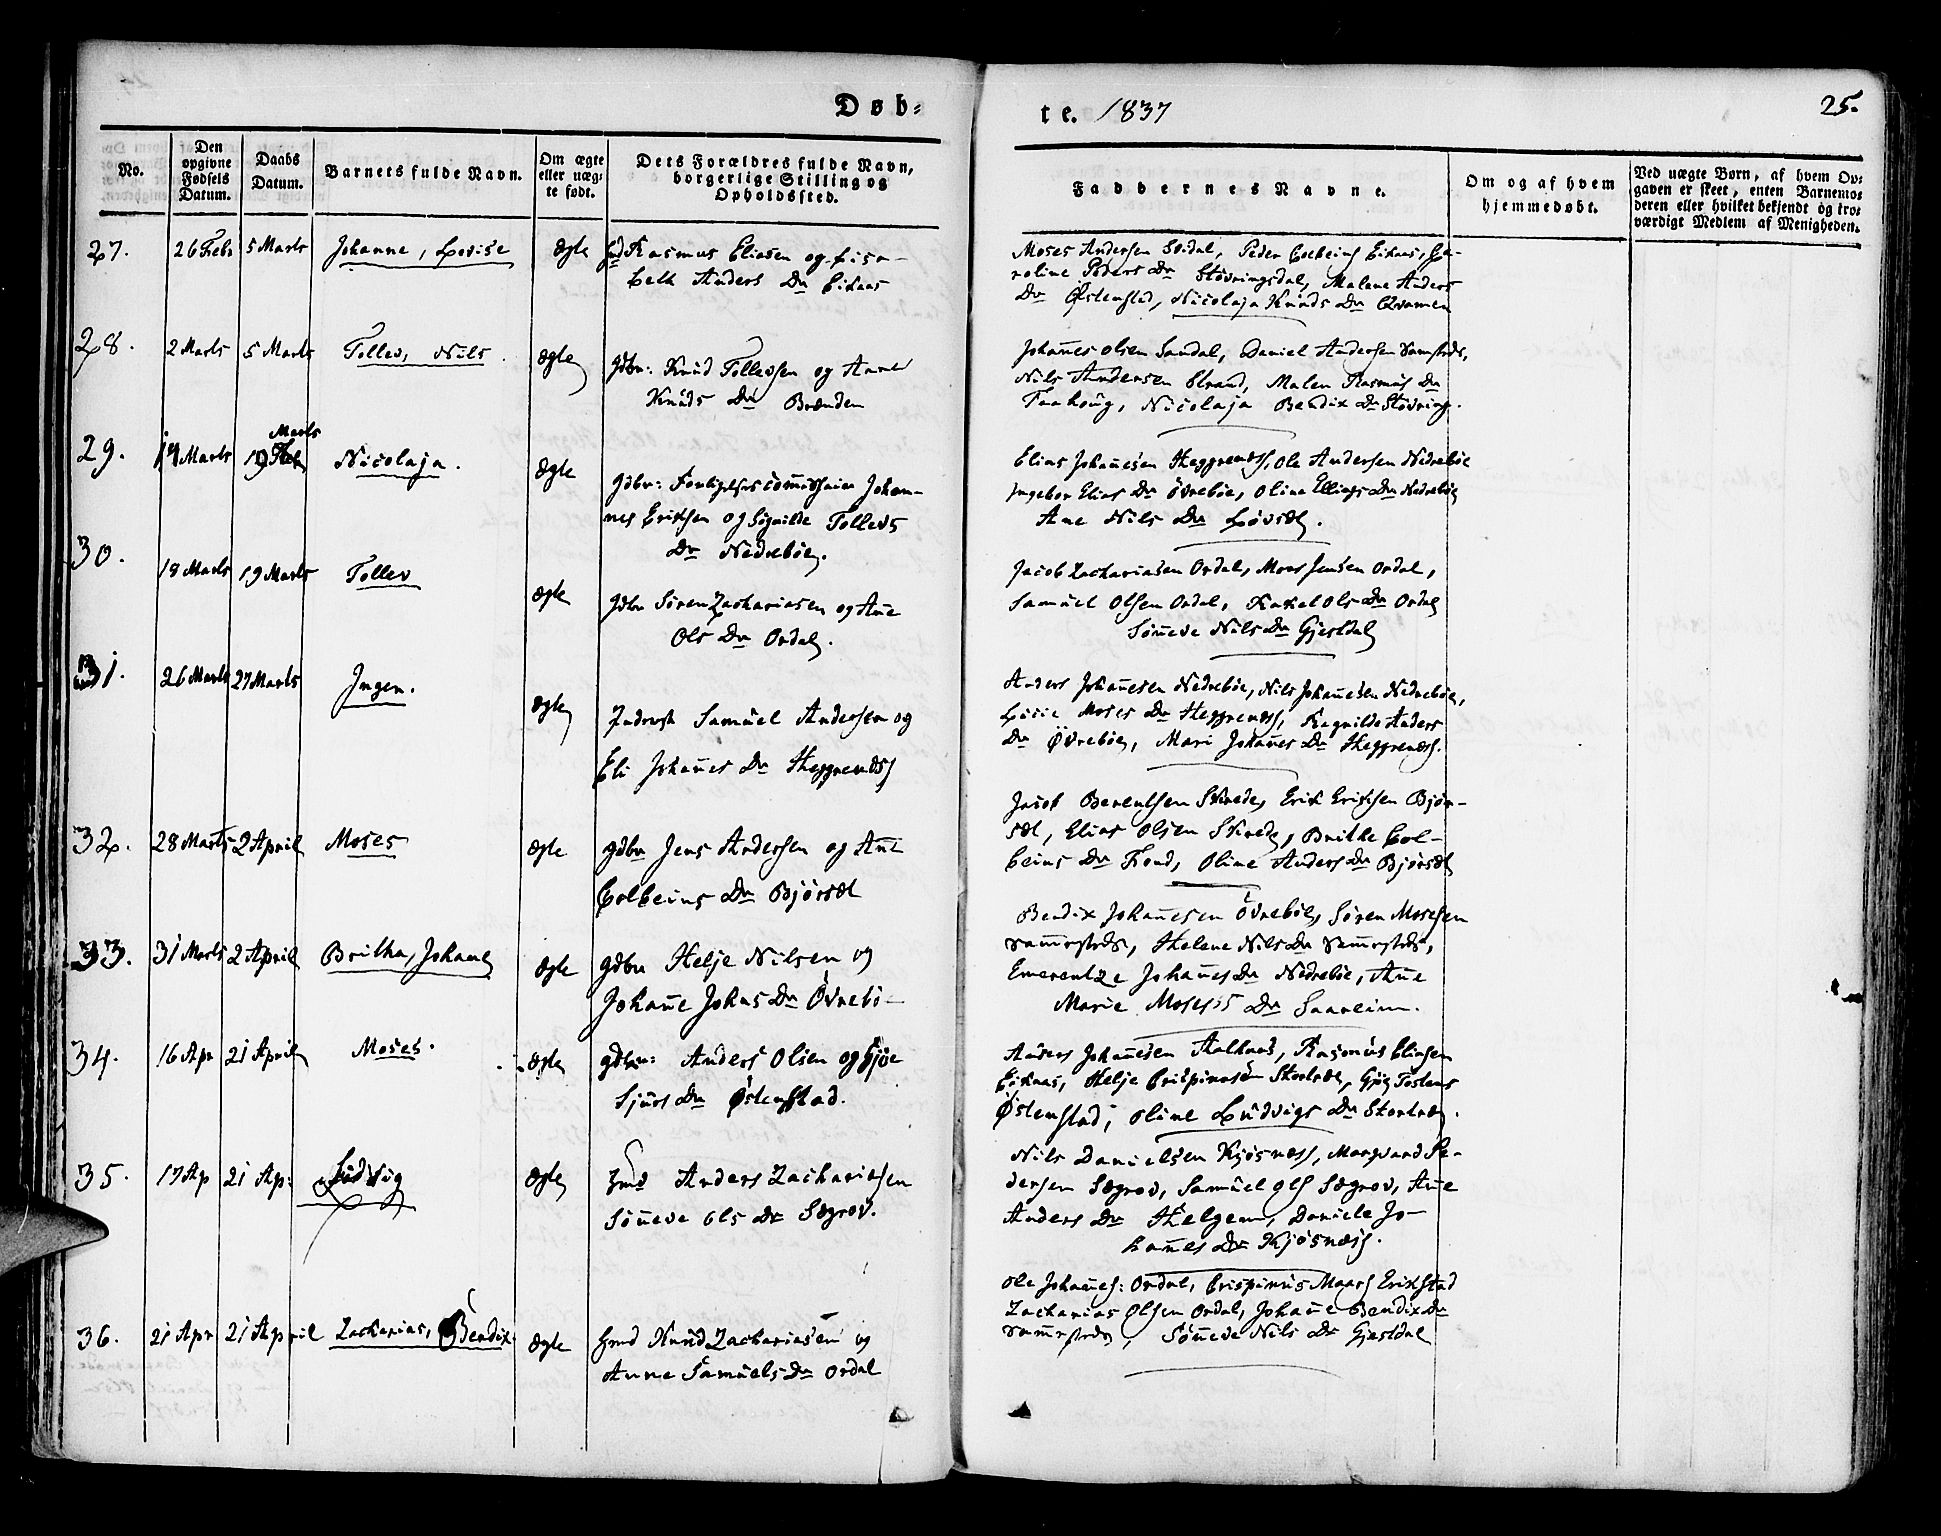 Døb-
te. 1837
25.
No.
Den
opgivne
Fødsels
Datum.
Daabs
Datum.
Barnets fulde Navn.
Om ægte
eller uæg-
te født.
Dets Forældres fulde Navn,
borgerlige Stilling og
Opholdssted.
Faddernes Navne.
Om og af hvem
hjemmedøbt.
Ved uægte Børn, af hvem Op-
gaven er skeet, enten Barnemo-
deren eller hvilket bekjendt og tro-
værdigt Medlem af Menigheden.
27.
26 Febr
5 Marts
Johanne, Lovise
Ægte
Rasmus Eliasen og Lisa-
beth Anders Dr Eikaas
Moses Andersen Svidal, Peder Colbeins Eikaas,
roline Peders Dr Støvringsdal, Malene Anders
Dr Østenstad, Nicolaja Knuds Dr Qvamen
28.
2 Marts
5 Marts
Tollev, Nils.
Ægte
Gdbr: Knud Tollevsen og Anne
Knuds Dr Brænden
Johannes Olsen Sandal, Daniel Andersen
Nils Andersen Strand, Malen Rasmus Dr
Nicolaja Bendix Dr Støvring.
29.
14 Marts
Marts
19
Nicolaja.
Ægte
Gdbr: Forligelsescommissair Johan-
nes Erichsen og Signilde Tollevs
Dr Nedrebøe.
Elias Johannesen Heggrenæs, Ole Andersen Nedrebøe
Ingebor Elias Dr Øvrebøe, Oline Ellings Dr Nedrebøe
Ane Nils Dr Løvsæt.
30.
18 Marts
19 Marts
Tollev
Ægte
Gdbr Sören Zachariasen og Ane
Ols Dr Ordal.
Jacob Zachariasen Ordal, Moses Jensen Ordal,
Samuel Olsen Ordal, Rakel Ols Dr Ordal
Sönneve Nils Dr Gjesdal
31.
26 Marts
27 Marts
Ingen.
Ægte
Inderst Samuel Andersen og
Eli Johannes Dr Heggrenæs
Anders Johannesen Nedrebøe, Nils Johannesen Nedrebøe,
Lucie Moses Dr Heggrenæs, Ragnilde Anders
Dr Øvrebøe, Mari Johannes Dr Heggrenæs.
32.
28 Marts
2 April
Moses
Ægte
Gdbr Jens Andersen og Anne
Colbeins Dr Bjørsæt
Jacob Berentsen Skrede, Erik Erichsen Bjør-
sæt, Elias Olsen Skrede, Brithe Col-
beins Dr Fond, Oline Anders Dr Bjørsæt
33.
31 Marts
2 April
Britha, Johanne
Ægte
Gdbr Helje Nilsen og
Johanne Johns Dr Øvrebø-
Bendix Johannesen Øvrebøe, Sören Mosesen
Helene Nils Dr
Emerentze Johannes Dr Nedrebøe, Ane
Marie Moses Dr Saareim.
34.
16 Apr
21 April
Moses.
Ægte
Gdbr: Anders Olsen og
Sjurs Dr Østenstad.
Anders Johannesen Aalkaas, Rasmus Eliasen
Eikaas, Helje Crispinusen
Østenstad, Oline Ludvigs Dr
35.
17 Ap
21 Ap:
Ludvig
Ægte
Anders Zachariasen
Sönneve Ols Dr Sægrov.
Nils Danielsen Kjøsnæss, Marqvard Pe-
dersen Sægrov, Samuel Ols Sægrov, Ane
Anders Dr Helgem, Daniele Jo-
hannes Dr Kjøsnæs.
36.
21 Apr
21 April
Zacharias, Bendix
Ægte
Knud Zachariasen og
Anne Samuels Dr Ordal
Ole Johannes: Ordal, Crispinus Maars Erikstad
Zacharias Olsen Ordal, Johanne Bendix Dr
Sönneve Nils Dr Gjesdal